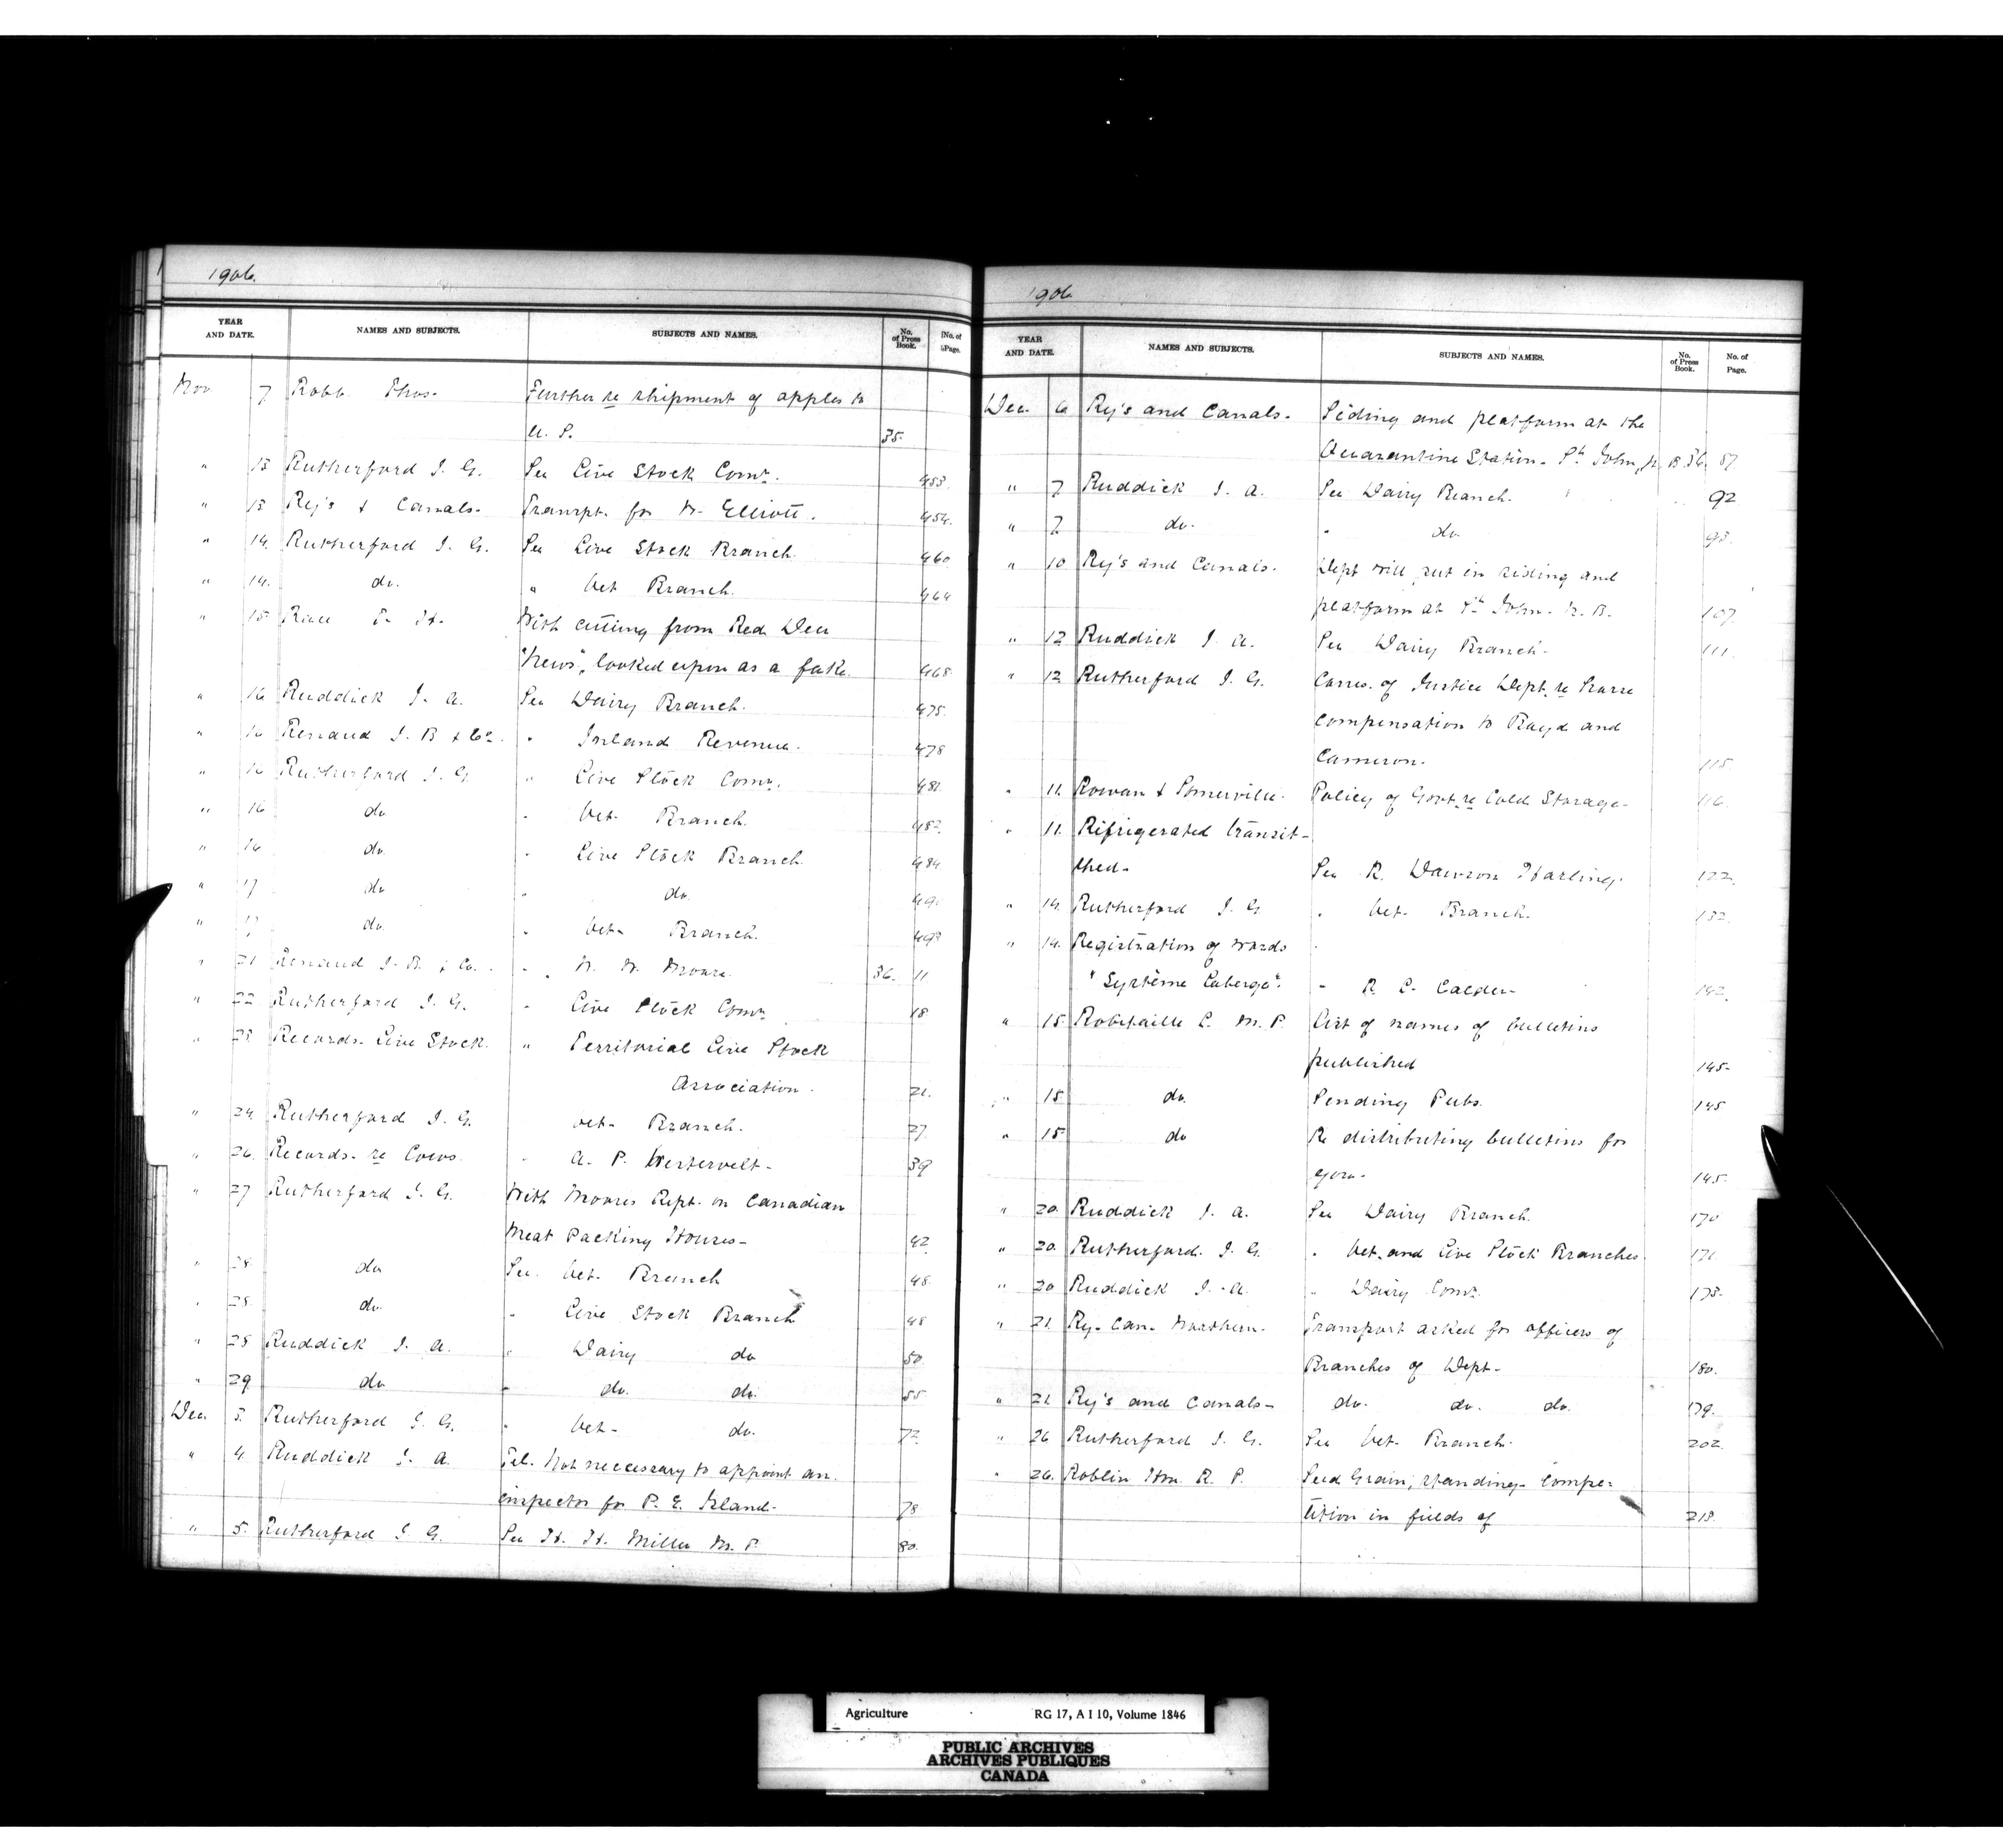 1906.
YEAR AND DATE. NAMES AND SUBJECTS. SUBJECTS AND NAMES. No. of Press Book. No. of Page.
Nov 7 Robb Thos. Further re shipment of apples to
U. S. 35.
" 13 Rutherford J. G. See Live Stock Comr. 453.
" 13 Ry's & Canals. Transpt. for W. Elliott. 454.
" 14. Rutherford J. G. See Live Stock Branch. 460
" 14. do. " Vet Branch. 464
" 15. Race T. H. With cutting from Red Deer
"News", looked upon as a fake. 468.
" 16 Ruddick J. A. See Dairy Branch. 475.
" 16 Renaud J. B & Co. " Inland Revenue. 478
" 16 Rutherford J. G. " Live Stock Comr. 481.
" 16 do. " Vet. Branch. 482.
" 16 do. " Live Stock Branch 484.
" 17 do " do. 490.
" 17 do. " Vet. Branch.
" 21 Renaud J. B. & Co. " W. W. Moore. 36. 11
" 22 Rutherford J. G. " Live Stock Comr. 18
" 23 Records. Live Stock. " Territorial Live Stock
Association. 21.
" 24. Rutherford J. G. Vet. Branch. 27.
" 26. Records. re Cows. " A. P. Westervelt. 39
" 27 Rutherford J. G. With Moores Rept. on Canadian
Meat Packing Houses. 42
" 28. do See Vet. Branch 48.
" 28. do. " Live Stock Branch 48
" 28 Ruddick J. A. " Dairy do 50.
" 29 do " do. do. 55.
Dec. 3. Rutherford J. G. " Vet. do. 72.
" 4. Ruddick J. A. Tel. Not neccessary to appoint an
inspector for P. E. Island. 78
" 5. Rutherford J. G. See H. H. Miller M. P. 80.
1906
YEAR AND DATE. NAMES AND SUBJECTS. SUBJECTS AND NAMES. No. of Press Book. No. of Page.
Dec. 6 Ry's and Canals. Siding and platform at the
Quarantine Station. St. John, N. B. 36. 87
" 7 Ruddick J. A. See Dairy Branch. 92
" 7 do. " do 93.
" 10 Ry's and Canals. Dept will put in siding and
platform at St. John. N. B. 107.
" 12 Ruddick J. A. See Dairy Branch. 111.
" 12 Rutherford J. G. Corres. of Justice Dept. re
compensation to Boyd and
Cameron. 115.
" 11. Rowan & Somerville. Policy of Govt. re Cold Storage. 116.
" 11. Rifrigerated transit
shed. See R. Dawson Harling. 122.
" 14. Rutherford J. G. " Vet. Branch. 132.
" 14. Registration of words "
"Système Laberge". " R. C. Calder. 142.
" 15 Robitaille L. M. P. List of names of bulletins
published 145.
" 15 do. Sending Pubs. 145
" 15 do Re distributing bulletins for
Govn. 145.
" 20. Ruddick J. A. See Dairy Branch. 170
" 20. Rutherford. J. G. " Vet. and Live Stock Branches. 171.
" 20 Ruddick J. A. " Dairy Comr. 173.
" 21. Ry. Can. Northern. Transport asked for officers of
Branches of Dept. 180.
" 21. Ry's and Canals. do. do. do. 179.
" 26 Rutherford J. G. See Vet. Branch. 202.
" 26. Roblin Hon. R. P. Seed Grain, standing. Compe-
tition in fields of 213.
Agriculture RG 17, A I 10, Volume 1846
PUBLIC ARCHIVES
ARCHIVES PUBLIQUES
CANADA